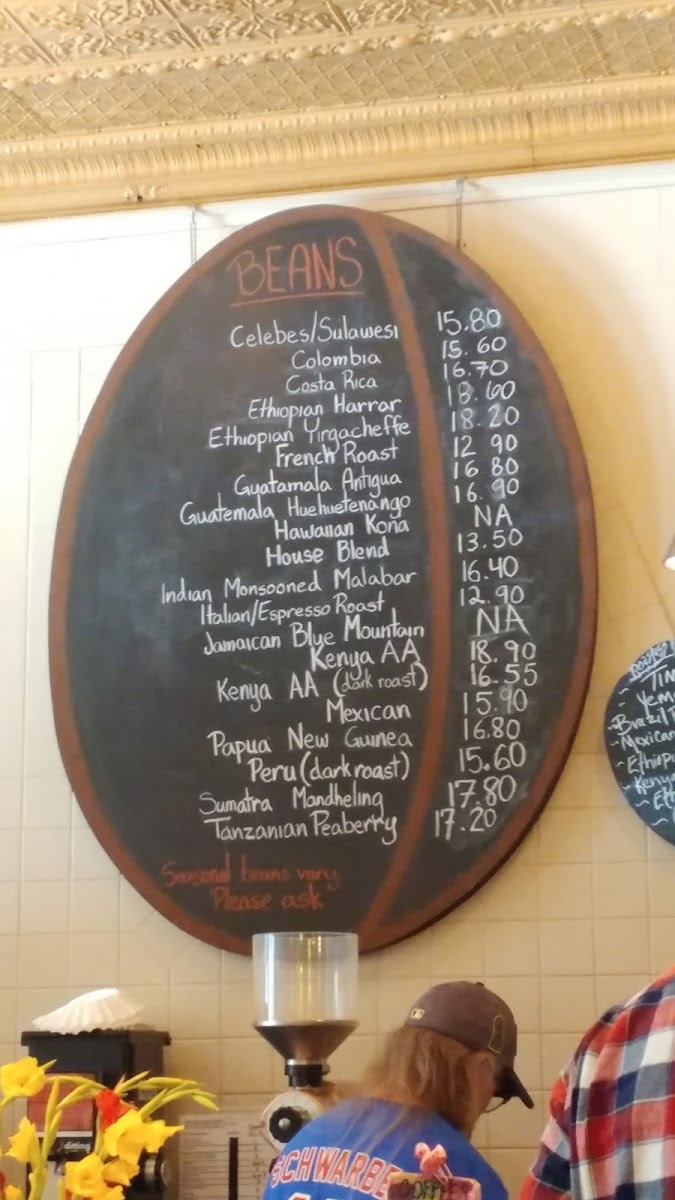 BEANS
Celebes/Sulawesi 15.80
Colombia 15.60
Costa Rica 16.70
Ethiopian Harrar 18.60
Ethiopian Yirgacheffe 18.20
French Roast 12 90
Guatamala Antigua 16 80
Guatemala Huehuetenango 16.90
Hawaiian Kona NA
House Blend 13.50
Indian Monsooned Malabar 16.40
Italian/Espresso Roast 12.90
Jamaican Blue Mountain NA
Kenya AA 18.90
Kenya AA (dark roast) 16.55
Mexican 15.90
Papua New Guinea 16.80
Peru (dark roast) 15.60
Sumatra Mandheling 17.80
Tanzanian Peaberry 17.20
Seasonal beans vary
Please ask
~ Brazil
~ Mexican
~ Ethiopi
~ Kenya
ditting
SCHWARBE